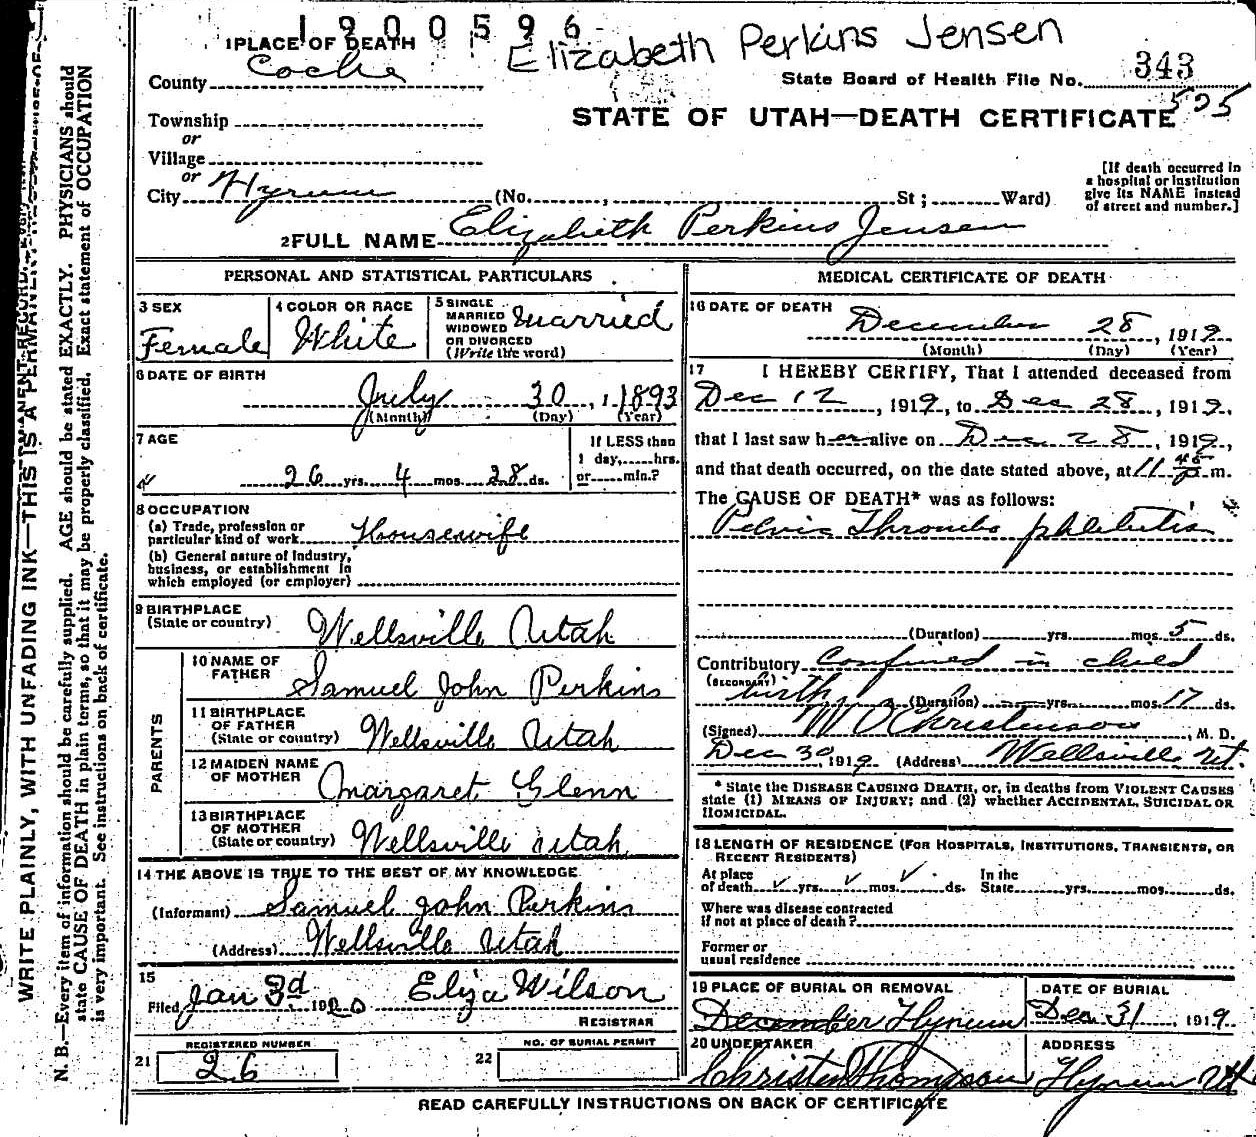 1900596
Elizabeth Perkins Jensen
1 PLACE OF DEATH
County Cache
State Board of Health File No. 343
505
STATE OF UTAH—DEATH CERTIFICATE
Township
or
Village
or
City Hyrum (No. , St ; Ward)
[If death occurred in
a hospital or institution
give its NAME instead
of street and number.]
2 FULL NAME Elizabeth Perkins Jensen
PERSONAL AND STATISTICAL PARTICULARS
3 SEX
Female
4 COLOR OR RACE
White
5 SINGLE
MARRIED
WIDOWED
OR DIVORCED
(Write the word)
Married
6 DATE OF BIRTH
July 30, 1893
(Month) (Day) (Year)
7 AGE
26 yrs. 4 mos. 28 ds.
If LESS than
1 day, hrs.
or min.?
8 OCCUPATION
(a) Trade, profession or
particular kind of work Housewife
(b) General nature of Industry,
business, or establishment in
which employed (or employer)
9 BIRTHPLACE
(State or country) Wellsville Utah
PARENTS
10 NAME OF
FATHER Samuel John Perkins
11 BIRTHPLACE
OF FATHER
(State or country) Wellsville Utah
12 MAIDEN NAME
OF MOTHER Margaret Glenn
13 BIRTHPLACE
OF MOTHER
(State or country) Wellsville Utah
14 THE ABOVE IS TRUE TO THE BEST OF MY KNOWLEDGE
(Informant) Samuel John Perkins
(Address) Wellsville Utah
15
Filed Jan 3d 1920 Eliza Wilson
REGISTRAR
21 REGISTERED NUMBER
26
22 NO. OF BURIAL PERMIT
MEDICAL CERTIFICATE OF DEATH
16 DATE OF DEATH
December 28, 1919
(Month) (Day) (Year)
17 I HEREBY CERTIFY, That I attended deceased from
Dec 12, 1919, to Dec 28, 1919,
that I last saw her alive on Dec 28, 1919,
and that death occurred, on the date stated above, at 11 45 p m.
The CAUSE OF DEATH* was as follows:
Pelvic Thrombo phlebitis
(Duration) yrs. mos. 5 ds.
Contributory Confined in child
(SECONDARY) birth (Duration) yrs. mos. 17 ds.
(Signed) M O Christenson, M. D.
Dec 30, 1919 (Address) Wellsville Ut.
* State the DISEASE CAUSING DEATH, or, in deaths from VIOLENT CAUSES
state (1) MEANS OF INJURY; and (2) whether ACCIDENTAL, SUICIDAL OR
HOMICIDAL.
18 LENGTH OF RESIDENCE (FOR HOSPITALS, INSTITUTIONS, TRANSIENTS, OR
RECENT RESIDENTS)
At place
of death yrs. mos. ds.
In the
State yrs. mos. ds.
Where was disease contracted
if not at place of death?
Former or
usual residence
19 PLACE OF BURIAL OR REMOVAL
December Hyrum
DATE OF BURIAL
Dec 31, 1919
20 UNDERTAKER
Christen Thompson
ADDRESS
Hyrum Ut
READ CAREFULLY INSTRUCTIONS ON BACK OF CERTIFICATE
WRITE PLAINLY, WITH UNFADING INK—THIS IS A PERMANENT RECORD.
N. B.—Every item of information should be carefully supplied. AGE should be stated EXACTLY. PHYSICIANS should
state CAUSE OF DEATH in plain terms, so that it may be properly classified. Exact statement of OCCUPATION
is very important. See instructions on back of certificate.